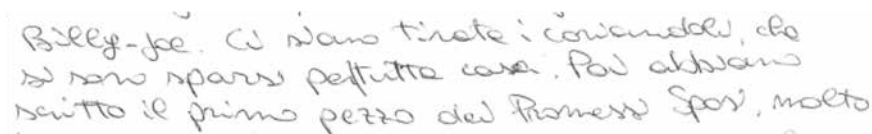 Billy-Joe. Ci siamo tirate i coriandoli, che
si sono sparsi pertutta casa. Poi abbiamo
scritto il primo pezzo dei Promessi Sposi, molto